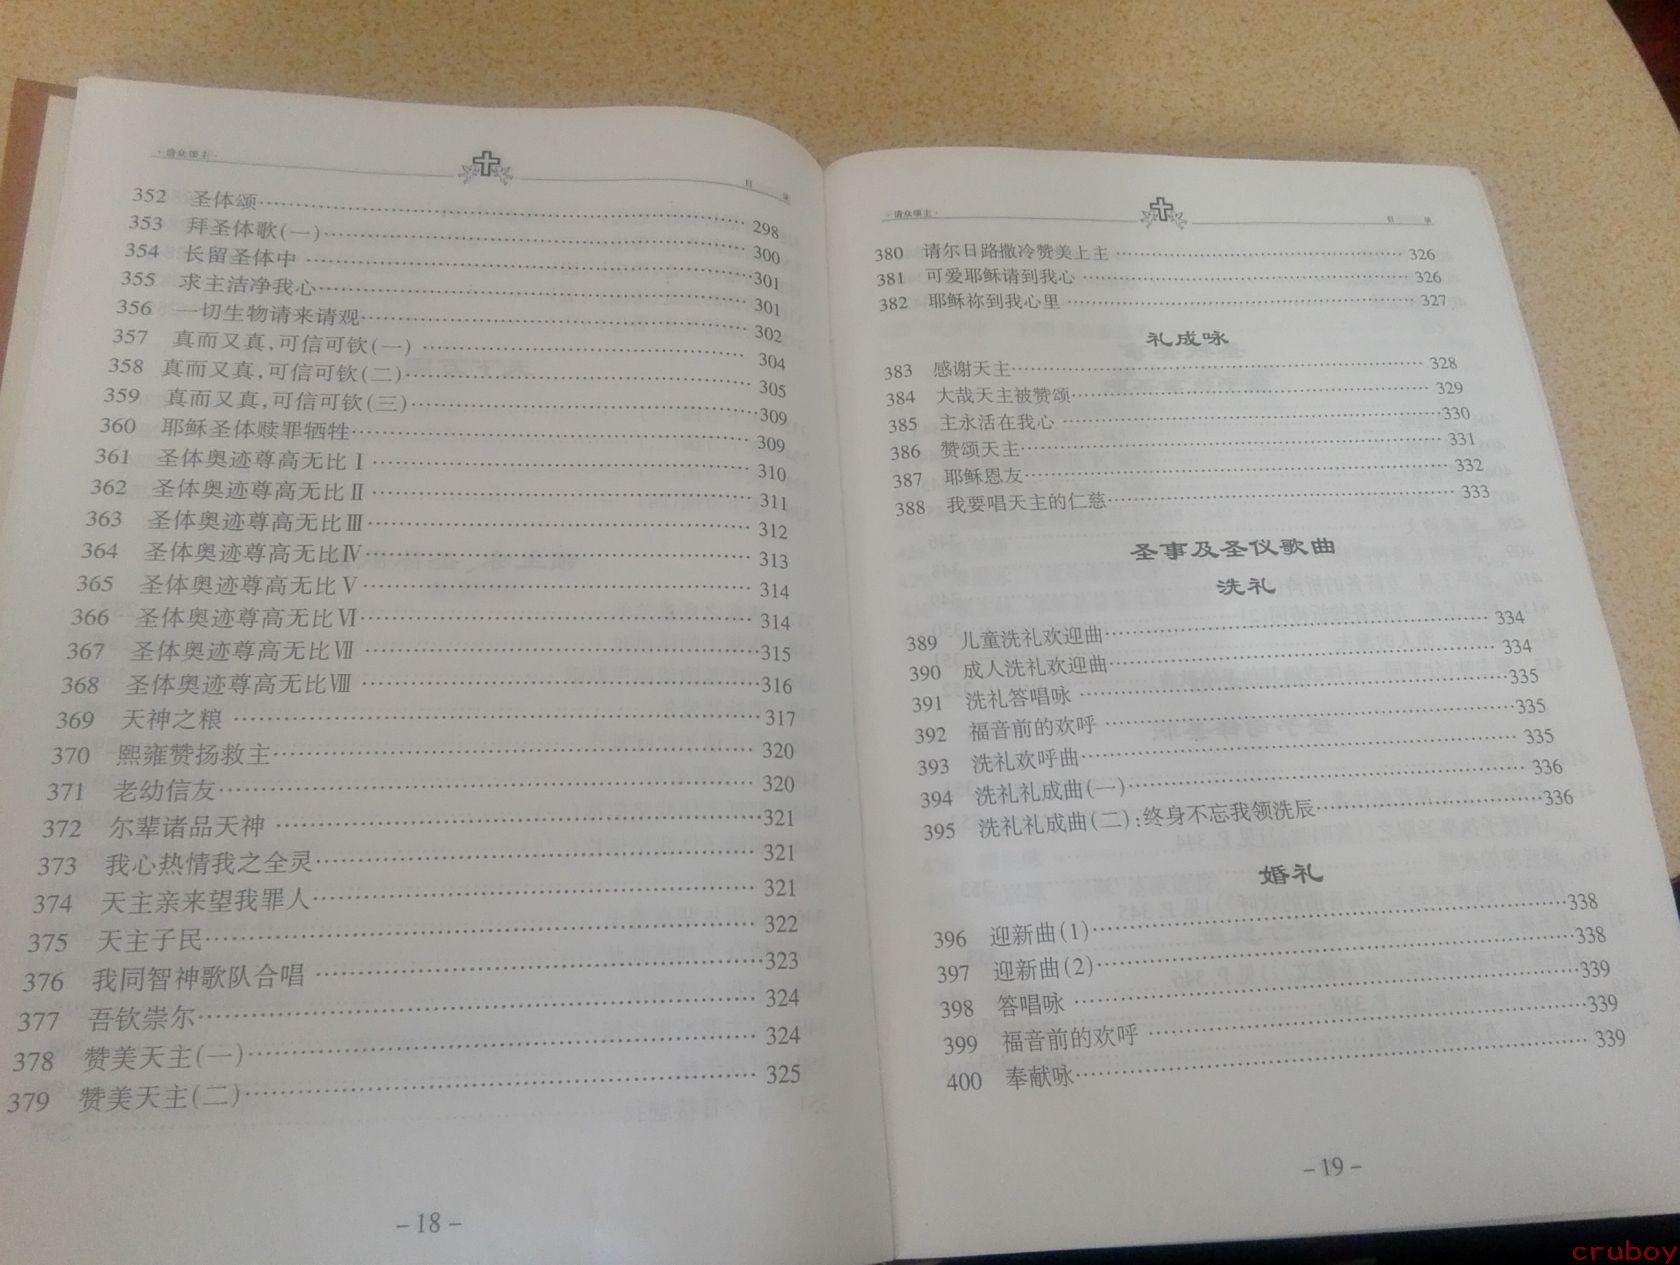 ·请众颂主·
目 录
352 圣体颂 298
353 拜圣体歌(一) 300
354 长留圣体中 301
355 求主洁净我心 301
356 一切生物请来请观 302
357 真而又真,可信可钦(一) 304
358 真而又真,可信可钦(二) 305
359 真而又真,可信可钦(三) 309
360 耶稣圣体赎罪牺牲 309
361 圣体奥迹尊高无比Ⅰ 310
362 圣体奥迹尊高无比Ⅱ 311
363 圣体奥迹尊高无比Ⅲ 312
364 圣体奥迹尊高无比Ⅳ 313
365 圣体奥迹尊高无比Ⅴ 314
366 圣体奥迹尊高无比Ⅵ 314
367 圣体奥迹尊高无比Ⅶ 315
368 圣体奥迹尊高无比Ⅷ 316
369 天神之粮 317
370 熙雍赞扬救主 320
371 老幼信友 320
372 尔辈诸品天神 321
373 我心热情我之全灵 321
374 天主亲来望我罪人 321
375 天主子民 322
376 我同智神歌队合唱 323
377 吾钦崇尔 324
378 赞美天主(一) 324
379 赞美天主(二) 325
–18–
·请众颂主·
目 录
380 请尔日路撒冷赞美上主 326
381 可爱耶稣请到我心 326
382 耶稣祢到我心里 327
礼成咏
383 感谢天主 328
384 大哉天主被赞颂 329
385 主永活在我心 330
386 赞颂天主 331
387 耶稣恩友 332
388 我要唱天主的仁慈 333
圣事及圣仪歌曲
洗礼
389 儿童洗礼欢迎曲 334
390 成人洗礼欢迎曲 334
391 洗礼答唱咏 335
392 福音前的欢呼 335
393 洗礼欢呼曲 335
394 洗礼礼成曲(一) 336
395 洗礼礼成曲(二):终身不忘我领洗辰 336
婚礼
396 迎新曲(1) 338
397 迎新曲(2) 338
398 答唱咏 339
399 福音前的欢呼 339
400 奉献咏 339
–19–
cruboy